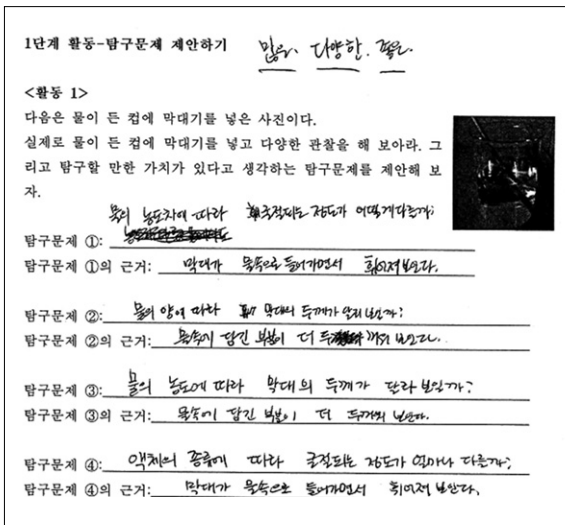 1단계 활동-탐구문제 제안하기 많은. 다양한. 좋은.
<활동 1>
다음은 물이 든 컵에 막대기를 넣은 사진이다.
실제로 물이 든 컵에 막대기를 넣고 다양한 관찰을 해 보아라. 그
리고 탐구할 만한 가치가 있다고 생각하는 탐구문제를 제안해 보
자.
물의 농도차에 따라 굴절되는 정도가 어떻게 다른가?
탐구문제 ①:
탐구문제 ①의 근거: 막대가 물속으로 들어가면서 휘어져 보인다.
탐구문제 ②: 물의 양에 따라 막대의 두께가 달리 보일까?
탐구문제 ②의 근거: 물속에 담긴 부분이 더 두꺼워 보인다.
탐구문제 ③: 물의 농도에 따라 막대의 두께가 달라 보일까?
탐구문제 ③의 근거: 물속에 담긴 부분이 더 두꺼워 보인다.
탐구문제 ④: 액체의 종류에 따라 굴절되는 정도가 얼마나 다른가?
탐구문제 ④의 근거: 막대가 물속으로 들어가면서 휘어져 보인다.